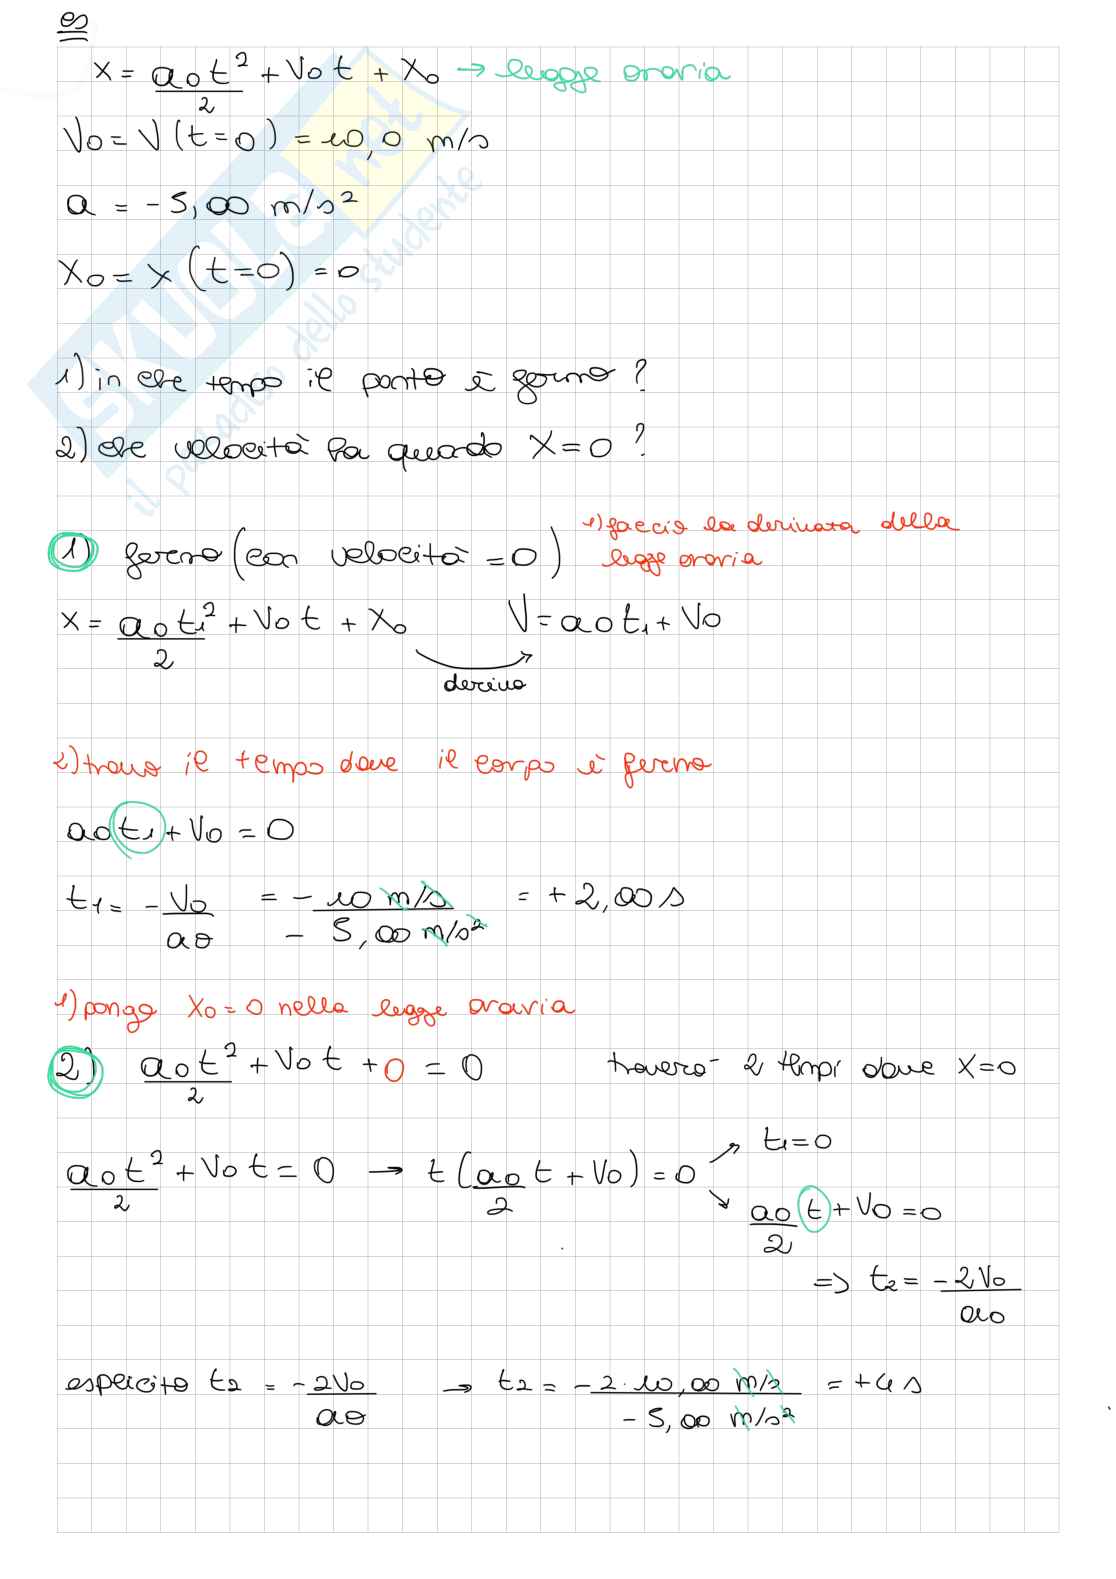 es
x = a₀t²/2 + V₀t + X₀ → legge oraria
V₀ = V(t=0) = 10,0 m/s
a = -5,00 m/s²
X₀ = x(t=0) = 0
1) in che tempo il punto è fermo?
2) che velocità ha quando X=0?
1) fermo (con velocità = 0)
1) faccio la derivata della
legge oraria
x = a₀t₁²/2 + V₀t + X₀ V = a₀t₁ + V₀
derivo
2) trovo il tempo dove il corpo è fermo
a₀t₁ + V₀ = 0
t₁ = -V₀/a₀ = -10 m/s / -5,00 m/s² = +2,00 s
1) pongo X₀ = 0 nella legge oraria
2) a₀t²/2 + V₀t + 0 = 0 troverò 2 tempi dove X=0
a₀t²/2 + V₀t = 0 → t(a₀/2 t + V₀) = 0
t₁ = 0
a₀/2 t + V₀ = 0
=> t₂ = -2V₀/a₀
esplicito t₂ = -2V₀/a₀ → t₂ = -2·10,00 m/s / -5,00 m/s² = +4 s
SKUOLA.net
il paradiso dello studente